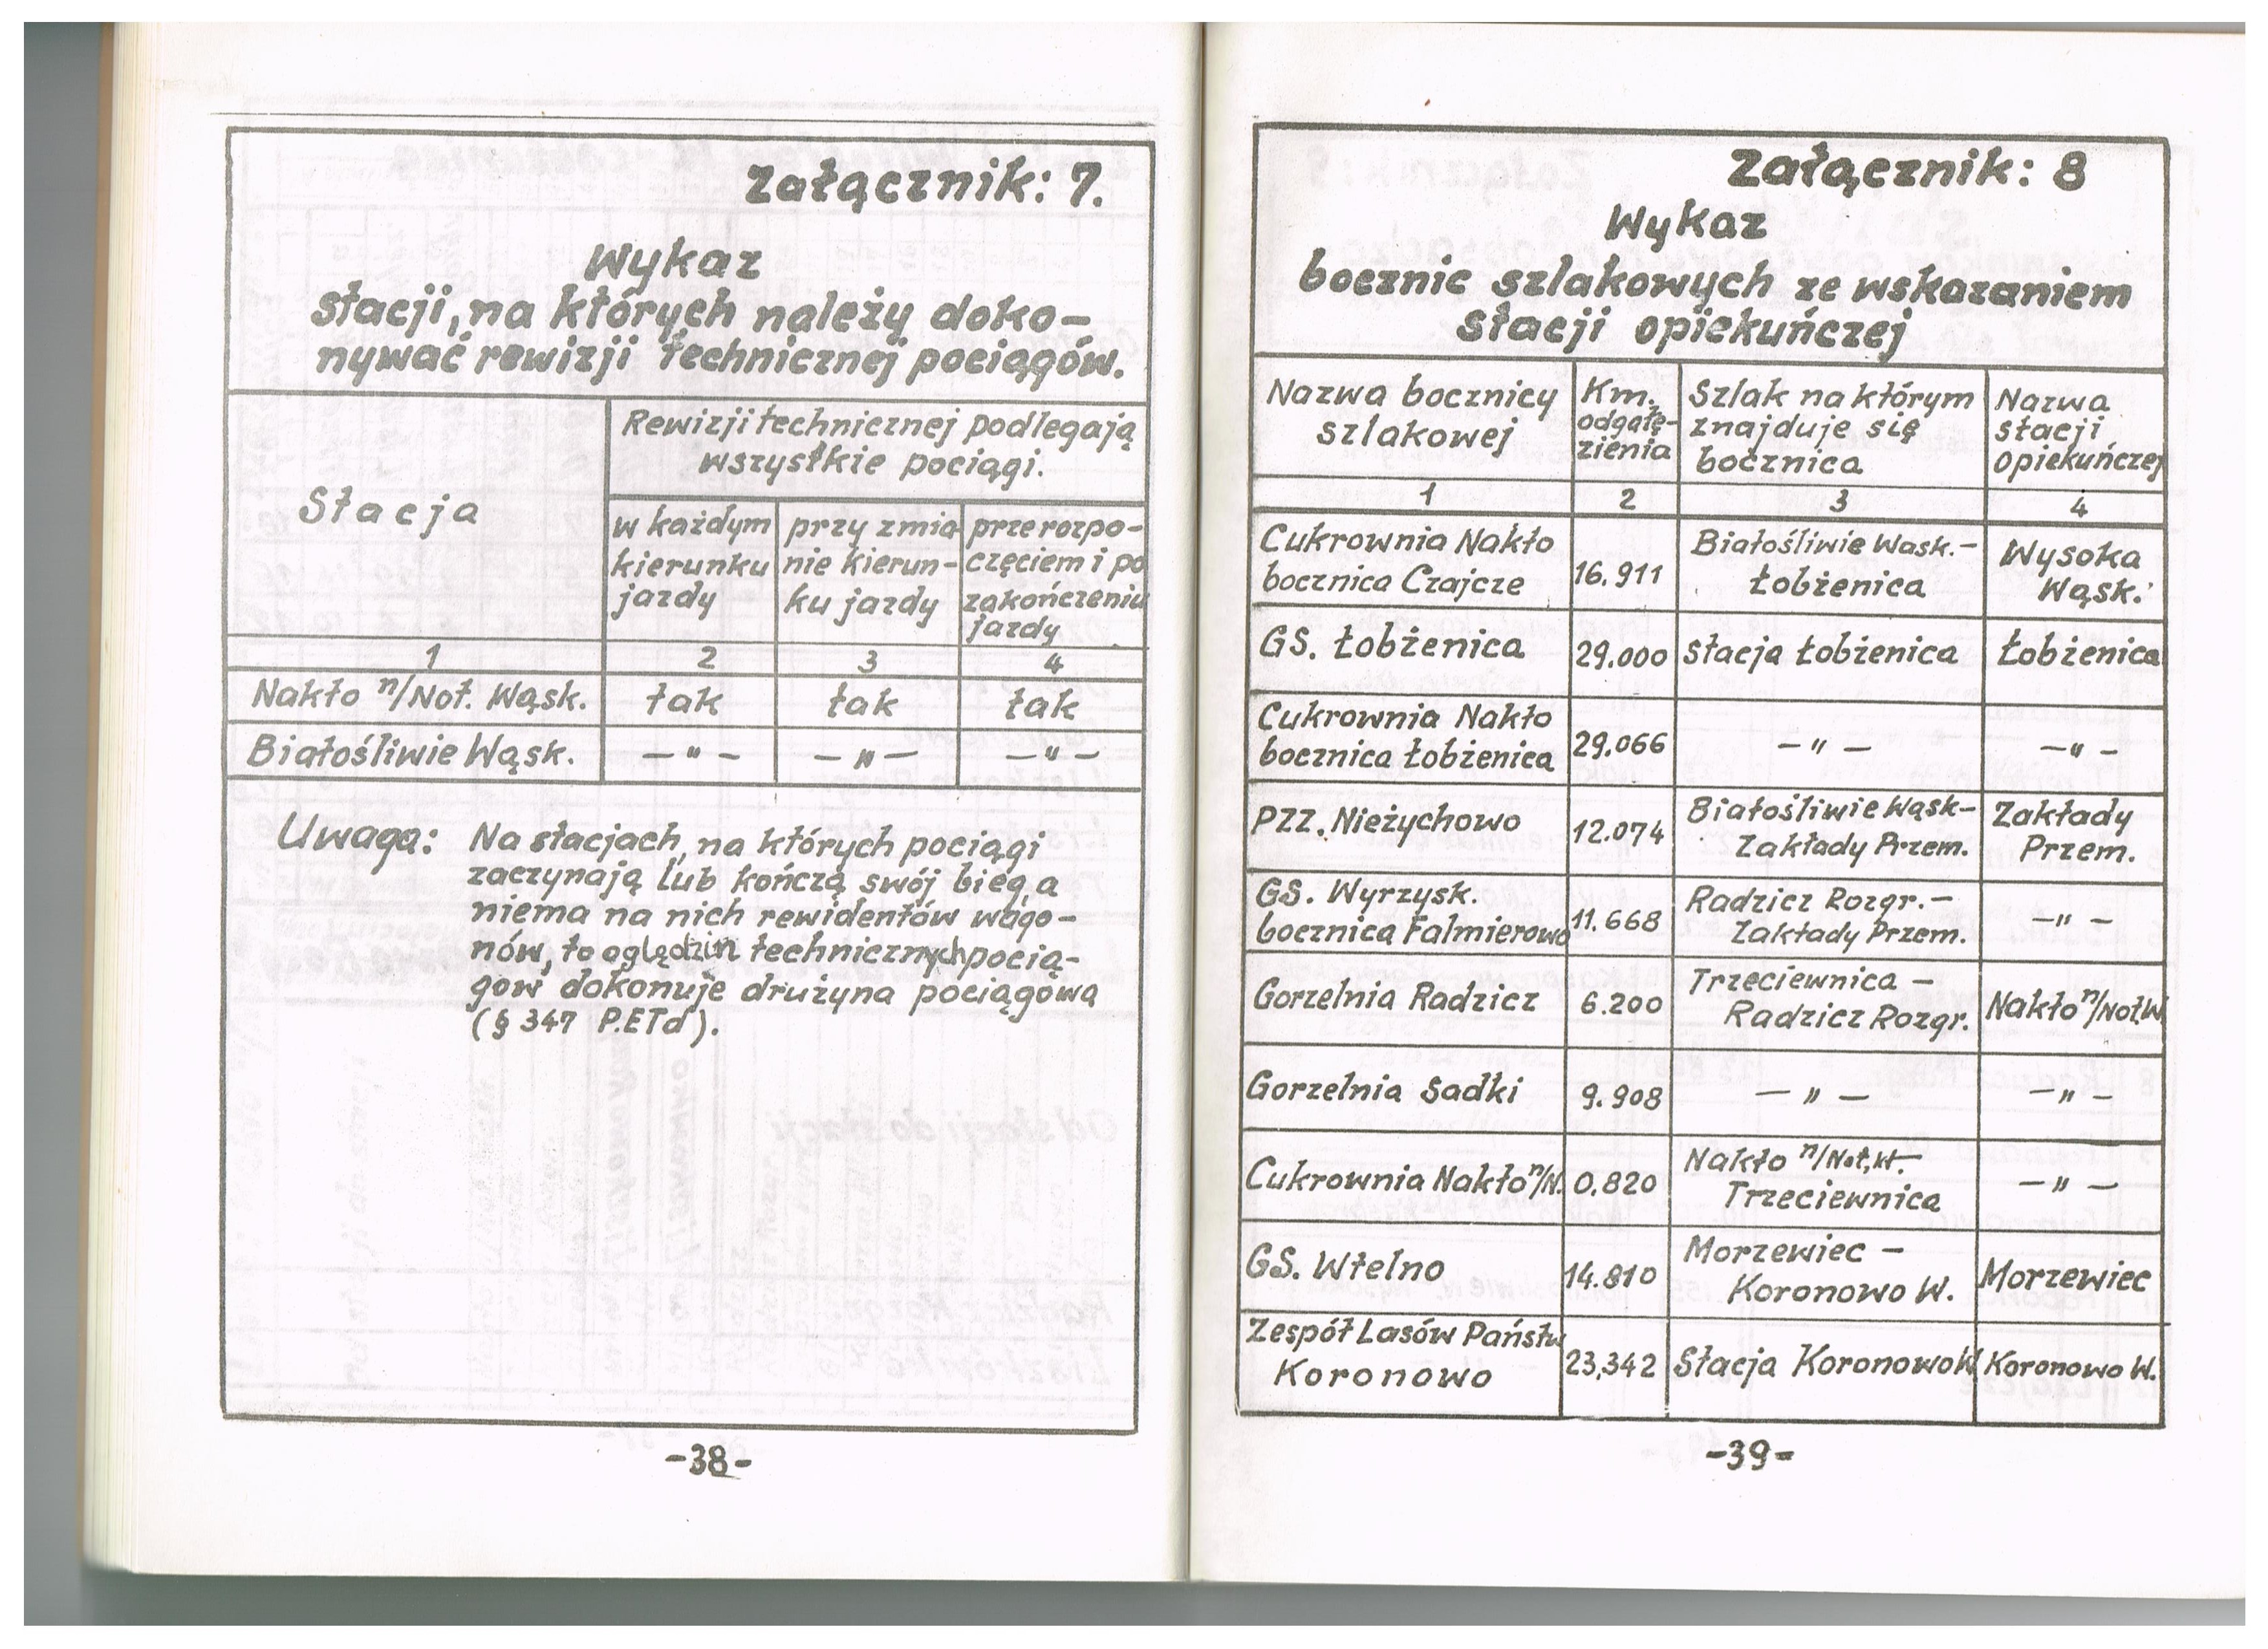 Załącznik: 7.
Wykaz
stacji, na których należy doko-
nywać rewizji technicznej pociągów.
Stacja
Rewizji technicznej podlegają
wszystkie pociągi.
w każdym
kierunku
jazdy
przy zmia
nie kierun-
ku jazdy
prze rozpo-
częciem i po
zakończeniu
jazdy
1 2 3 4
Nakło n/Not. Wąsk. tak tak tak
Białośliwie Wąsk. — " — — " — — " —
Uwaga: Na stacjach, na których pociągi
zaczynają lub kończą swój bieg, a
niema na nich rewidentów wago-
nów, to oględzin technicznych pocią-
gów dokonuje drużyna pociągowa
(§ 347 P.ETd).
-38-
Załącznik: 8
Wykaz
bocznic szlakowych ze wskazaniem
stacji opiekuńczej
Nazwa bocznicy
szlakowej
Km.
odgałę-
zienia
Szlak na którym
znajduje się
bocznica
Nazwa
stacji
opiekuńczej
1 2 3 4
Cukrownia Nakło
bocznica Czajcze
16.911
Białośliwie Wask.-
Łobżenica
Wysoka
Wąsk.
GS. Łobżenica 29.000 Stacja Łobżenica Łobżenica
Cukrownia Nakło
bocznica Łobżenica
29.066 — " — — " —
PZZ. Nieżychowo 12.074
Białośliwie Wąsk-
Zakłady Przem.
Zakłady
Przem.
GS. Wyrzysk.
bocznica Falmierowo
11.668
Radzicz Rozgr.-
Zakłady Przem.
— " —
Gorzelnia Radzicz 6.200
Trzeciewnica -
Radzicz Rozgr.
Nakło n/Not.W.
Gorzelnia Sadki 9.908 — " — — " —
Cukrownia Nakło n/N. 0.820
Nakło n/Not.W.-
Trzeciewnica
— " —
GS. Wtelno 14.810
Morzewiec -
Koronowo W.
Morzewiec
Zespół Lasów Państw
Koronowo
23,342 Stacja Koronowo W Koronowo W.
-39-